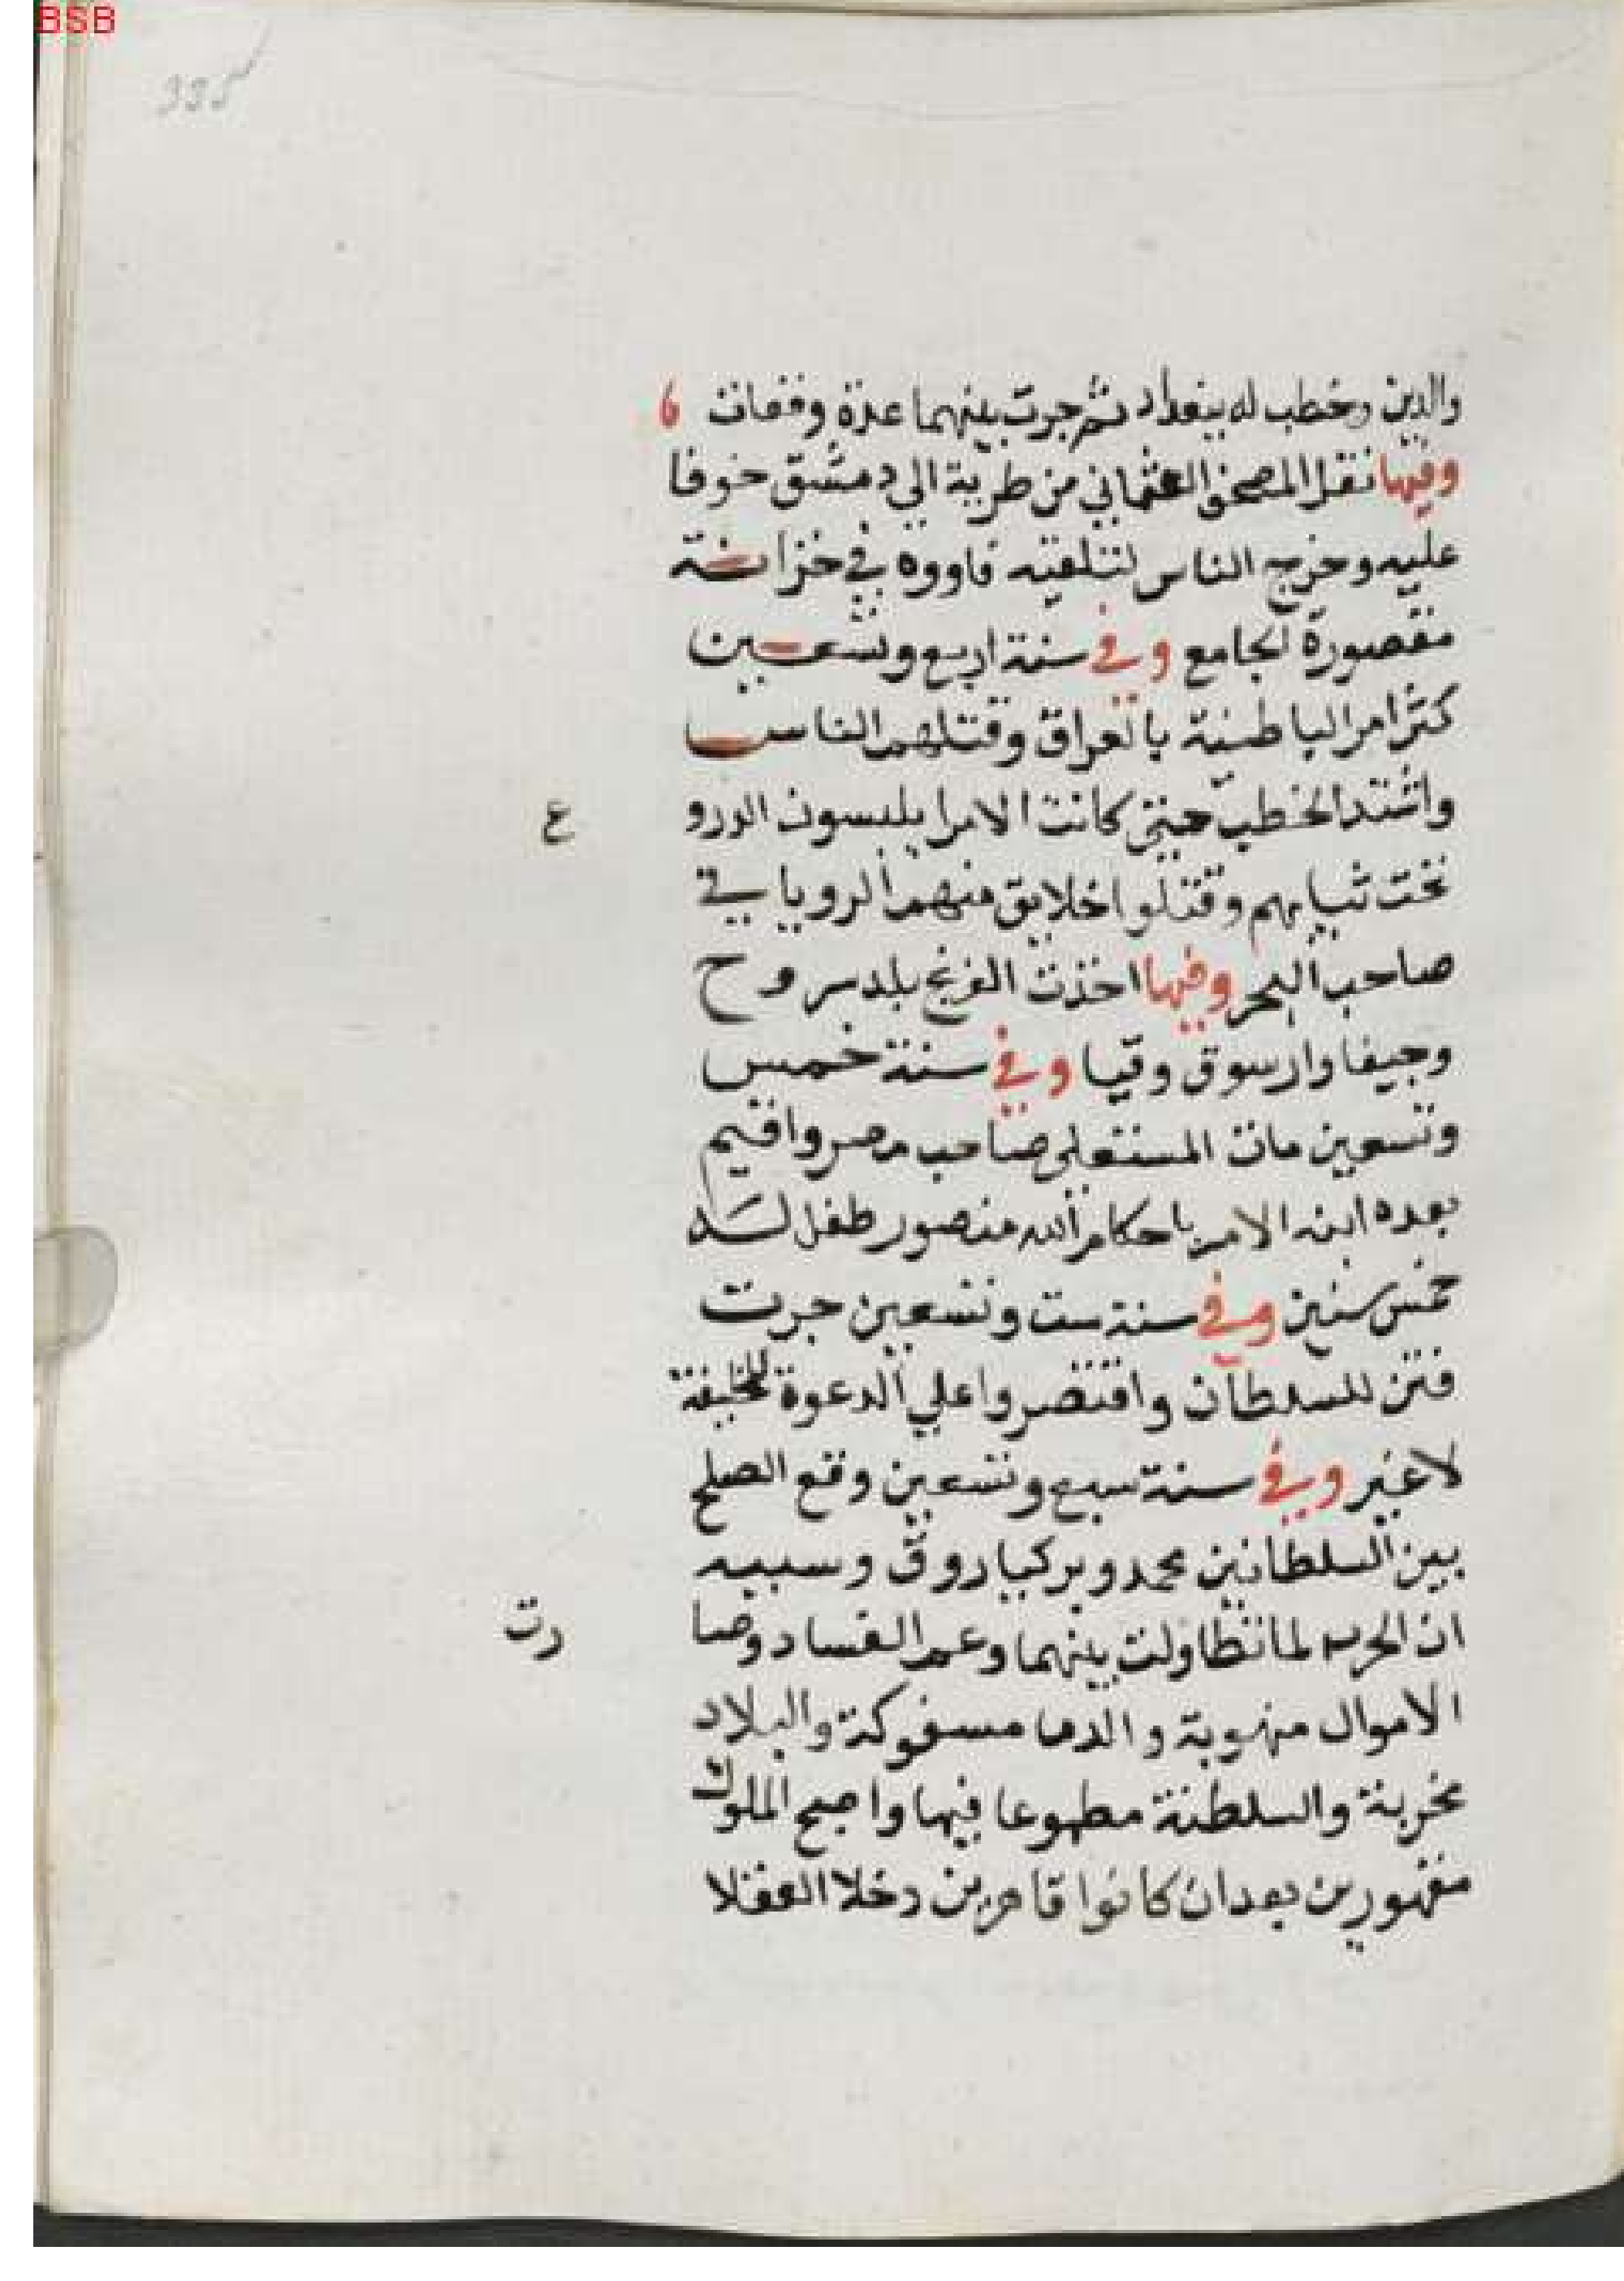 BSB
335
والدين وخطب له ببغداد ثم جرت بينهما عدة وقعات
وفيها نقل المصحف العثماني من طرية الي دمشق خوفا
عليه وخرج الناس لتلقيه فاووه في خزانة
مقصورة الجامع وفي سنة اربع وتسعين
كثر امر الباطنية بالعراق وقتلهم الناس
واشتد الخطب حتي كانت الامرا يلبسون الدرو
ع
تحت ثيابهم وقتلوا خلايق منهم الروياني
صاحب البحر وفيها اخذت الفرنج بلد سروح
وحيفا وارسوق وقيسا وفي سنة خمس
وتسعين مات المستعلي صاحب مصر واقيم
بعده ابنه الامر باحكام الله منصور طفل له
خمس سنين وفي سنة ست وتسعين جرت
فتن للسلطان واقتصروا علي الدعوة للخليفة
لا غير وفي سنة سبع وتسعين وقع الصلح
بين السلطانين محمد وبركياروق وسببه
ان الحرب لما تطاولت بينهما وعم الفساد وصا
رت
الاموال منهوبة والدما مسفوكة والبلاد
مخربة والسلطنة مطموعا فيها واصبح الملوك
مقهورين بعد ان كانوا قاهرين دخلا العقلا